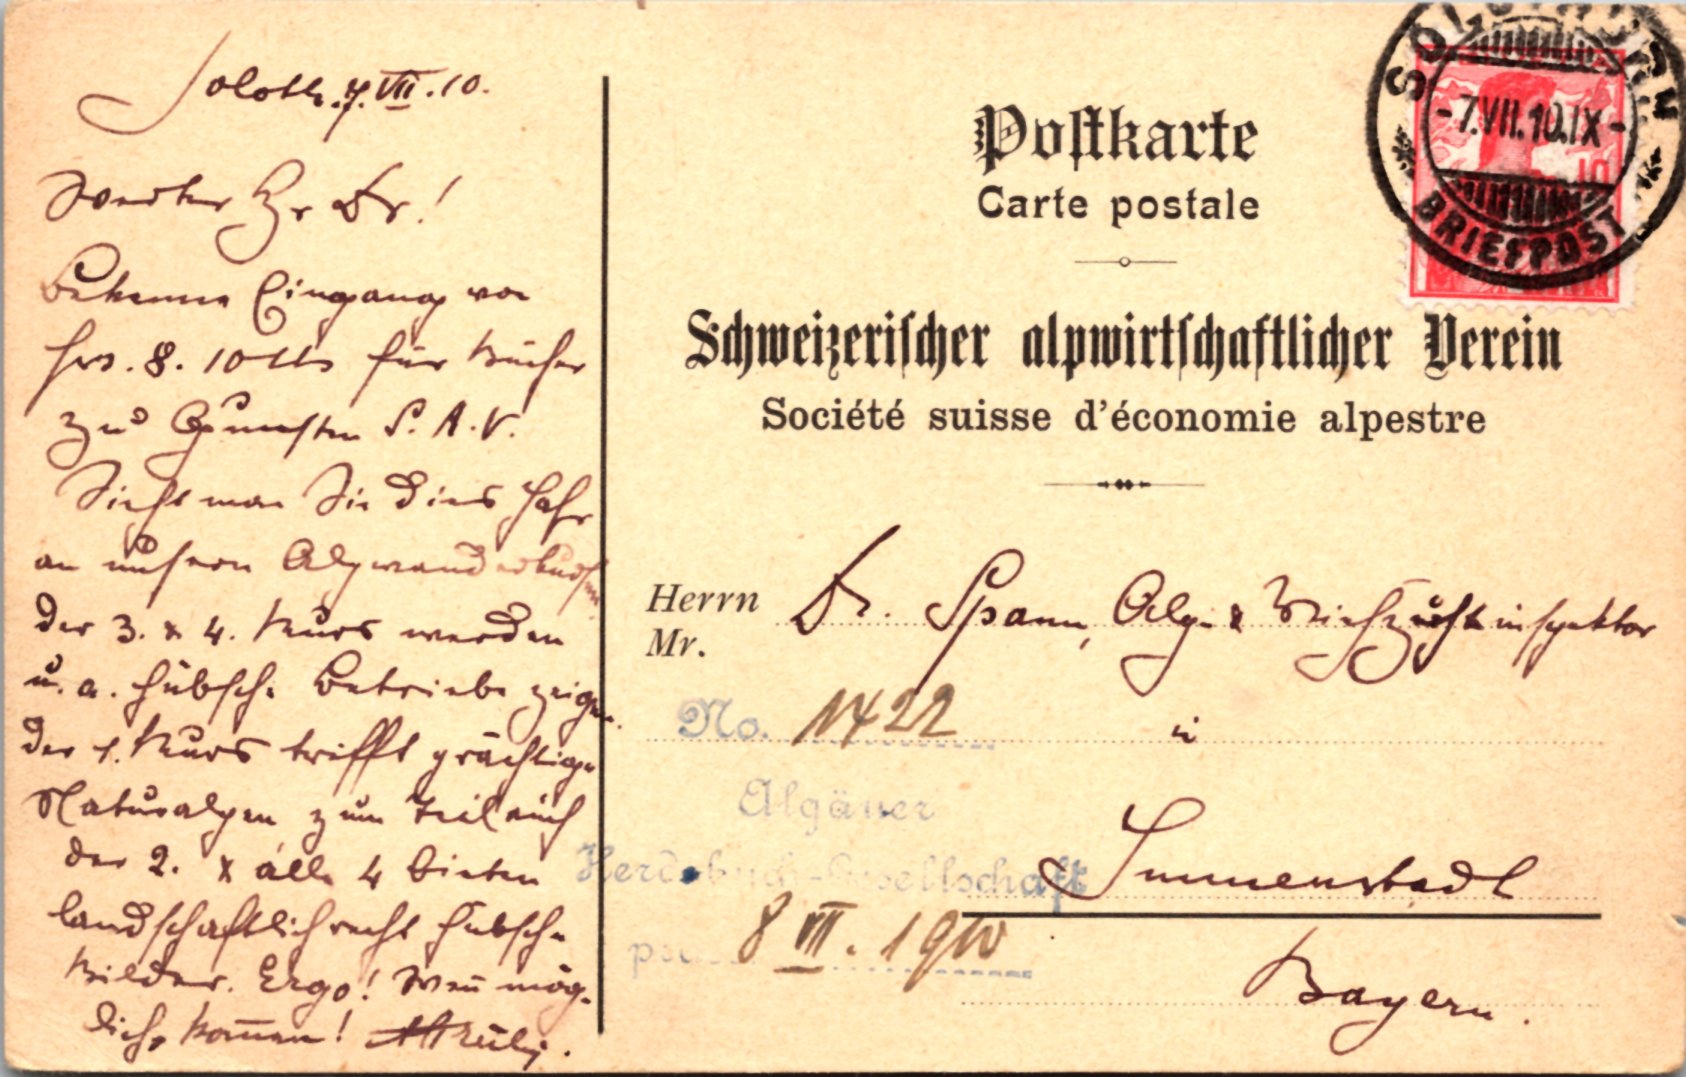 Soloth. 7. VII. 10.
Werter Hr Dr!
Bekenne Eingang von
frs. 8. 10 cts für Bücher
zu Gunsten S. A. V.
Sieht man Sie dies Jahr
an unsern Alpwanderkursen
der 3. & 4. Kurs werden
u. a. hübsche Betriebe zeigen.
der 1. Kurs trifft prächtige
Naturalpen zum Teil auch
der 2. & alle 4 bieten
landschaftlich recht hübsche
Bilder. Ergo! Wenn mög-
lich, kommen!
Postkarte
Carte postale
Schweizerischer alpwirtschaftlicher Verein
Société suisse d'économie alpestre
Herrn Dr. Spann, Alp- & Viehzuchtinspektor
Mr.
No. 1422
in
Algäuer
Herdebuch-Gesellschaft
Immenstadt
8 VII. 1910
Bayern.
SOLOTHURN
-7.VII.10.IX-
BRIEFPOST
10